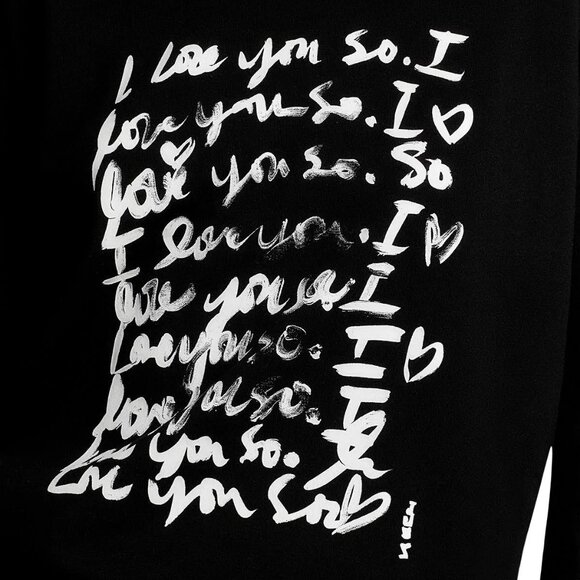 I love you so. I
love you so. I ♡
love you so. So
I love you. I ♡
love you so I
Love you so. I ♡
love you so. I
Love you so. I
Love you so ♡